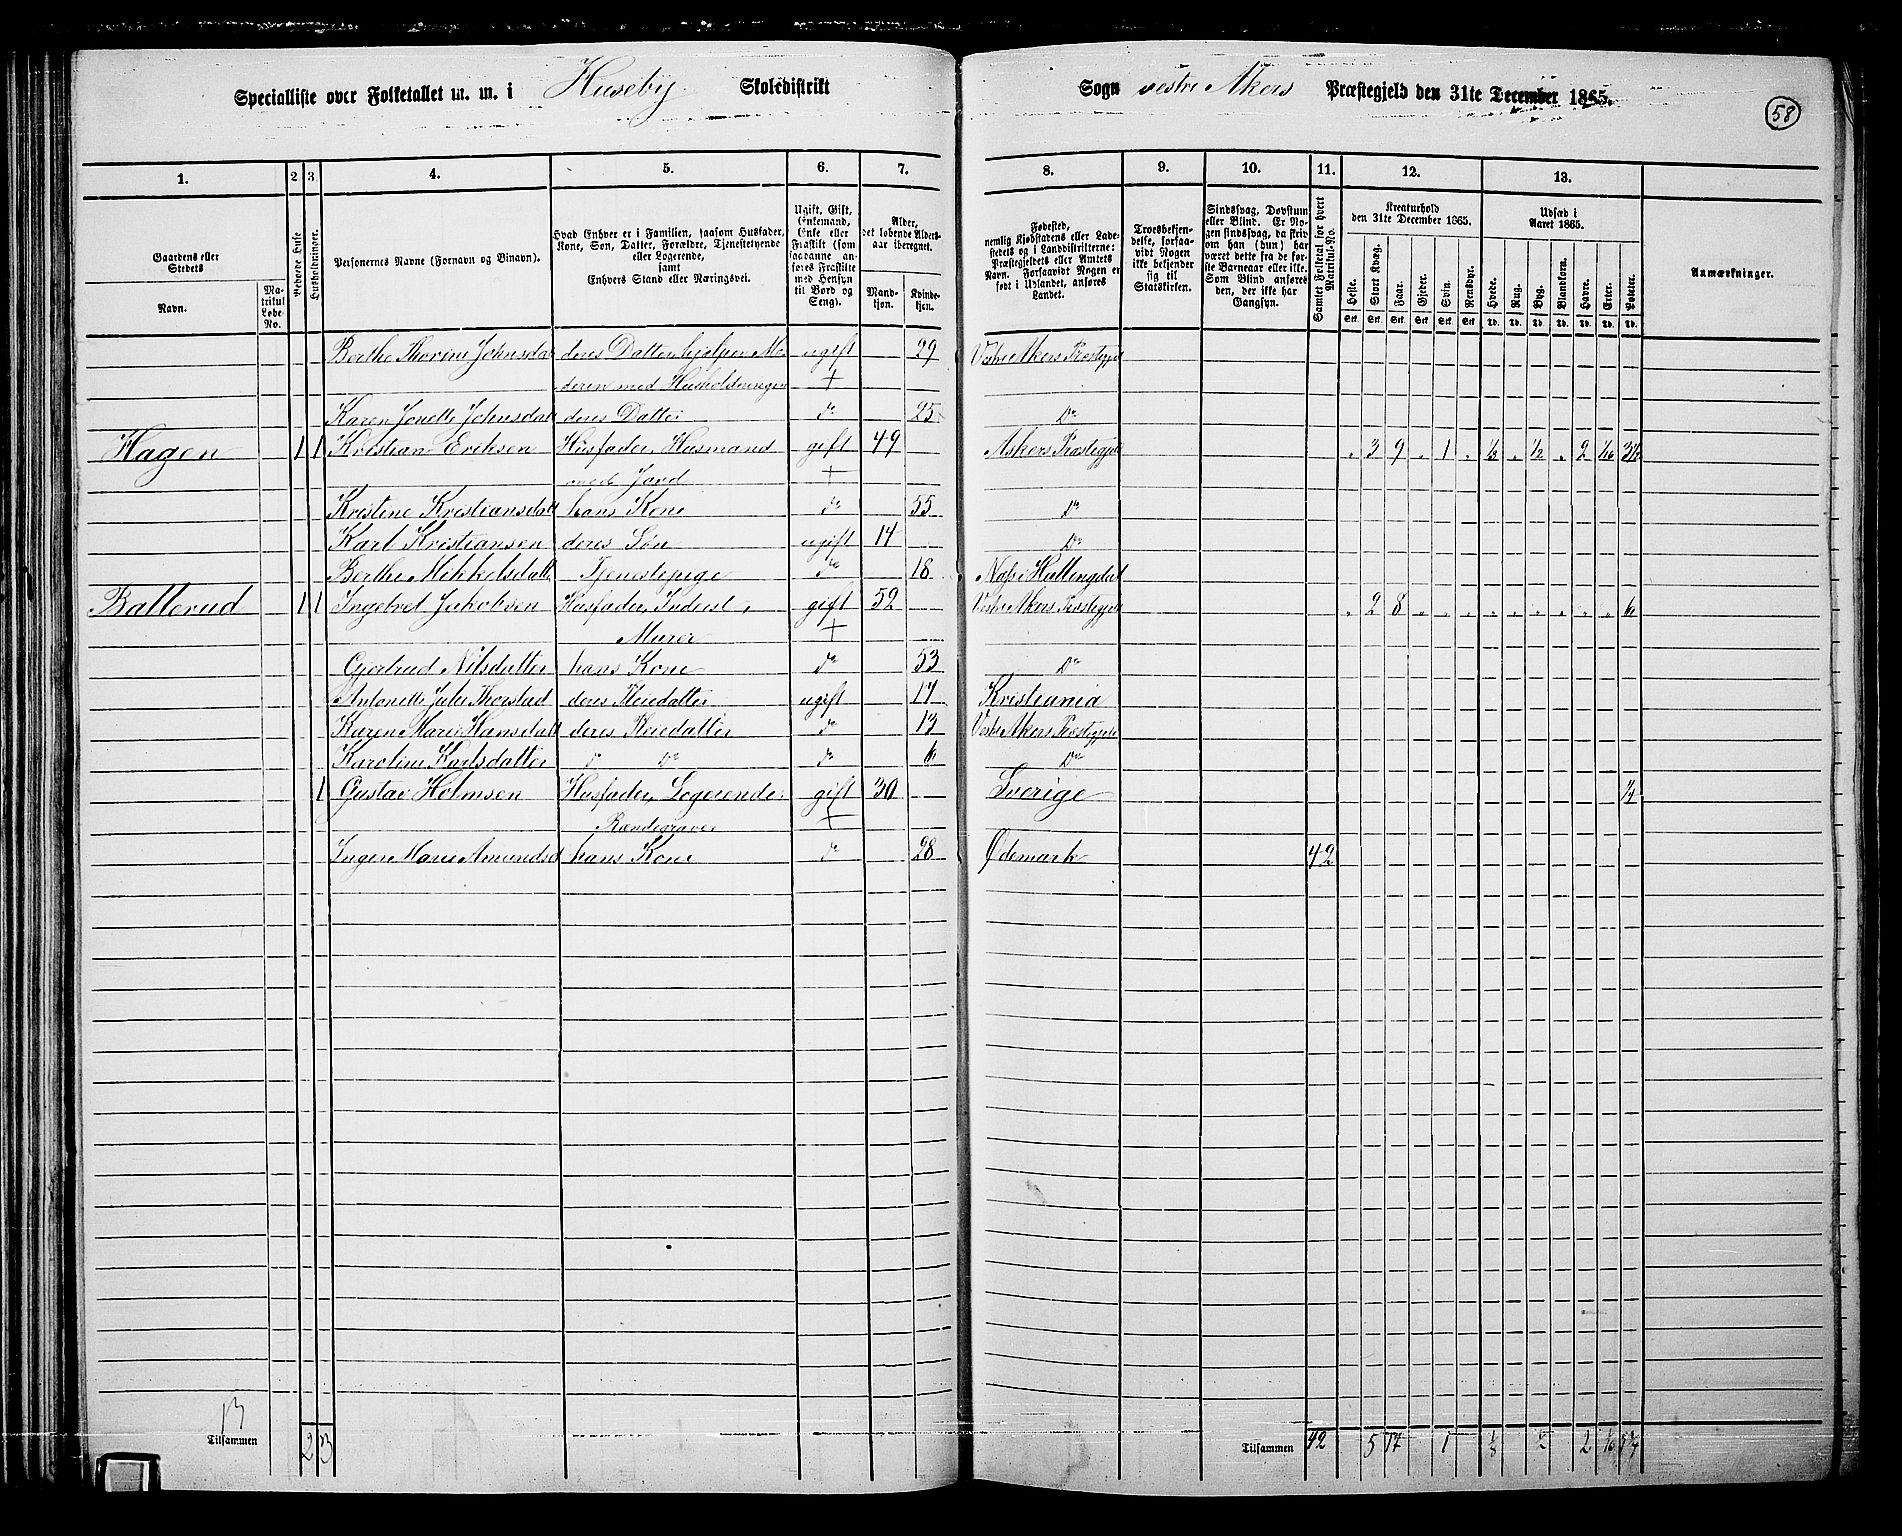 Specialliste over Folketallet m. m. i Huseby Skoledistrikt Sogn vestre Akers Præstegjeld den 31te December 1865.
58
1. 2 3 4. 5. 6. 7. 8. 9. 10. 11. 12. 13.
Gaardens eller Stedets
Navn.
Matrikul Løbe-No.
Beboede Huse
Husholdninger.
Personernes Navne (Fornavn og Binavn).
Hvad Enhver er i Familien, saasom Husfader, Kone, Søn, Datter, Forældre, Tjenestetyende eller Logerende,
samt
Enhvers Stand eller Næringsvei.
Ugift, Gift, Enkemand, Enke eller Fraskilt (som saadanne anføres Fraskilte med Hensyn til Bord og Seng).
Alder, det løbende Alders-aar iberegnet.
Mandkjøn. Kvindekjøn.
Fødested, nemlig Kjøbstadens eller Ladestedets og i Landdistrikterne: Præstegjeldets eller Amtets Navn. Forsaavidt Nogen er født i Udlandet, anføres Landet.
Troesbekjendelse, forsaavidt Nogen ikke bekjender sig til Statskirken.
Sindssvag, Døvstum eller Blind. Er Nogen sindssvag, da skrives om han (hun) har været dette fra de første Barneaar eller ikke. Som Blind anføres den, der ikke har Gangsyn.
Samlet Folketal for hvert Matrikul-No.
Kreaturhold den 31te December 1865.
Heste. Stort Kvæg. Faar. Gjeder. Svin. Rensdyr.
Udsæd i Aaret 1865.
Hvede. Rug. Byg. Blandkorn. Havre. Erter. Poteter.
Anmærkninger.
Berthe Thorine Johnsdat deres Datter, hjelper Mo ugift 29 Vestre Akers Præstegjeld
deren med Husholdningen +
Karen Jonette Johnsdatt deres Datter do 25 Do
Hagen 1 1 Kristian Eriksen Husfader, Husmand gift 49 Askers Præstegjeld " 3 9 " 1 " 1/8 " 1/2 " 2 1/16 3 1/2
med Jord +
Kristine Kristiansdatt hans Kone do 55 Do
Karl Kristiansen deres Søn ugift 14 Do
Berthe Mikkelsdatt Tjenestepige do 18 Næs i Hallingdal
Ballerud 1 1 Ingebret Jakobsen Husfader, Inderst, gift 52 Vestre Akers Præstegjeld " 2 8 " " " " " " " " " 6
Murer +
Gjertrud Nilsdatter hans Kone do 53 Do
Antonette Julie Thorstad deres Pleiedatter ugift 17 Kristiania
Karen Marie Hansdatt deres Pleiedatter do 13 Vestre Akers Præstegjeld
Karoline Karlsdatter do do do 6 Do
1 Gustav Holmsen Husfader, Logerende, gift 30 Sverige 1/4
Rendegraver +
Inger Marie Amundsd hans Kone do 28 Ødemark 42
13
Tilsammen 2 3 Tilsammen 42 5 17 1 1/8 1/2 2 1/16